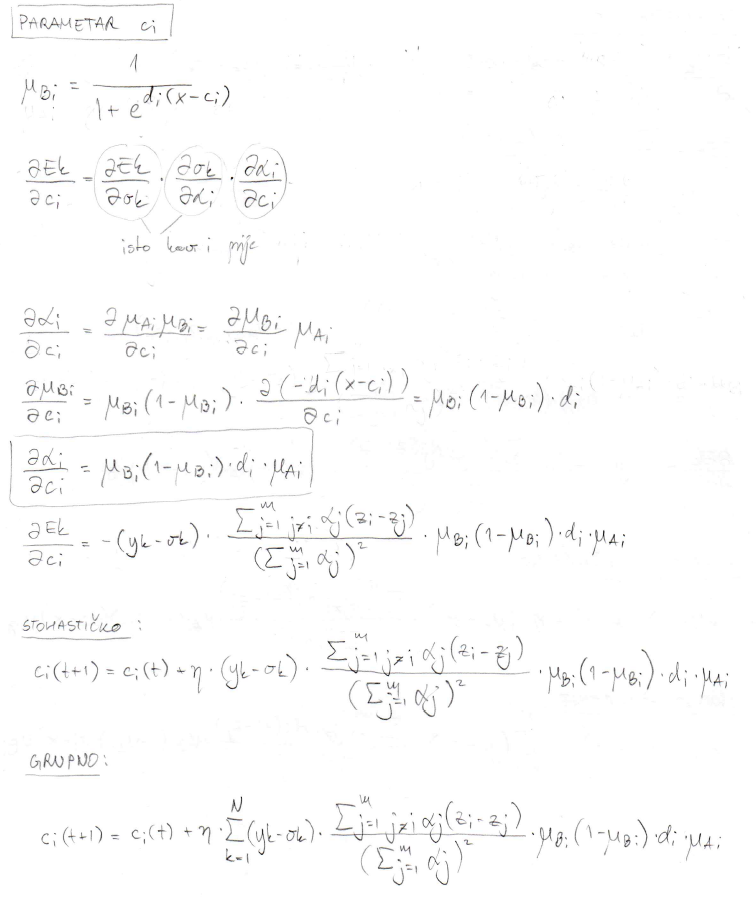 PARAMETAR ci
μBi = 1 / (1 + e^(di(x-ci)))
∂Ek/∂ci = ∂Ek/∂σk · ∂σk/∂αi · ∂αi/∂ci
isto kao i prije
∂αi/∂ci = ∂μAiμBi/∂ci = ∂μBi/∂ci μAi
∂μBi/∂ci = μBi(1-μBi) · ∂(-di(x-ci))/∂ci = μBi(1-μBi)·di
∂αi/∂ci = μBi(1-μBi)·di·μAi
∂Ek/∂ci = -(yk-σk) · Σ^m_{j=1 j≠i} αj(zi-zj) / (Σ^m_{j=1} αj)² · μBi(1-μBi)·di·μAi
STOHASTIČKO:
ci(t+1) = ci(t) + η·(yk-σk) · Σ^m_{j=1 j≠i} αj(zi-zj) / (Σ^m_{j=1} αj)² · μBi(1-μBi)·di·μAi
GRUPNO:
ci(t+1) = ci(t) + η·Σ^N_{k=1}(yk-σk) · Σ^m_{j=1 j≠i} αj(zi-zj) / (Σ^m_{j=1} αj)² · μBi(1-μBi)·di·μAi